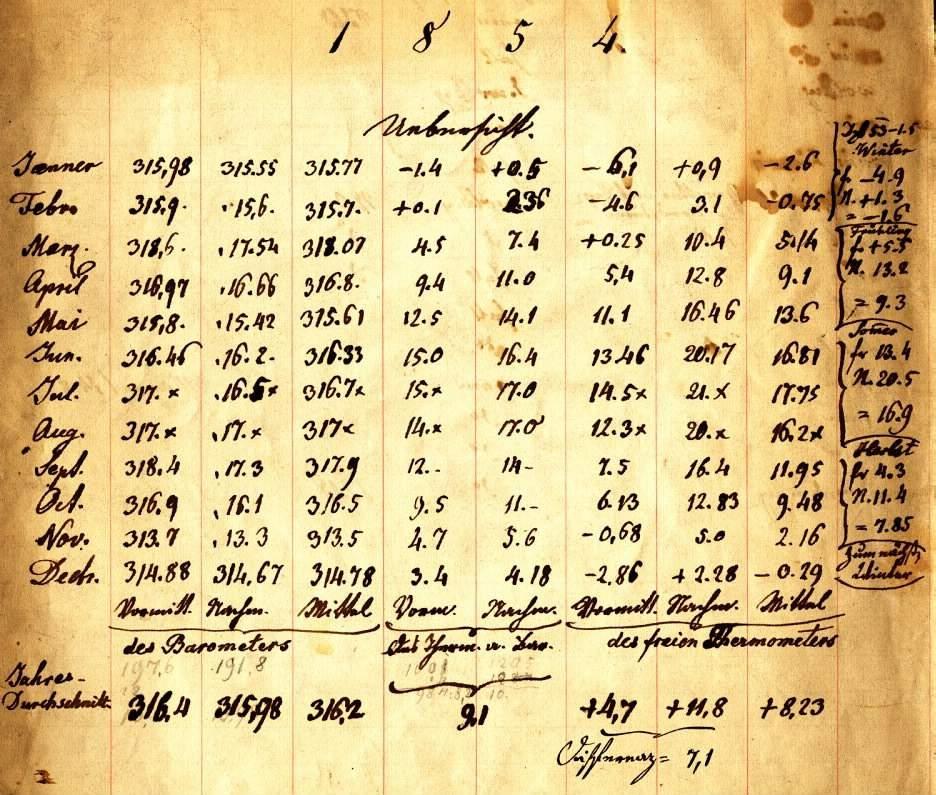 1 8 5 4.
Uebersicht.
Jænner 315,98 315.55 315.77 -1.4 +0.5 -6,1 +0,9 -2.6
Febr. 315.9. .15,6. 315.7. +0.1 2.36 -4.6 3.1 -0.75
Merz. 318,6. .17.54 318.07 4.5 7.4 +0.25 10.4 5.14
April 316,97 .16.66 316.8. 9.4 11.0 5,4 12.8 9.1
Mai 315,8. .15.42 315.61 12.5 14.1 11.1 16.46 13.6
Jun. 316.46 .16.2. 316.33 15.0 16.4 13.46 20.17 16.81
Jul. 317.x .16.5x 316.7x 15.x 17.0 14.5x 21.x 17.75
Aug. 317.x .17.x 317x 14.x 17.0 12.3x 20.x 16.2x
Sept. 318.4 .17.3 317.9 12.- 14- 7.5 16.4 11.95
Oct. 316.9 .16.1 316.5 9.5 11.- 6.13 12.83 9.48
Nov. 313.7 .13.3 313.5 4.7 5.6 -0,68 5.0 2.16
Decb. 314.88 314,67 314.78 3.4 4.18 -2,86 +2.28 -0.29
Vormitt. Nachm. Mittel Vorm. Nachm. Vormitt. Nachm. Mittel
des Barometers des Therm. a. Bar. des freien Thermometers
197,6 191,8
Jahres-
Durchschnitt. 316,4 315,98 316,2 9.1 +4,7 +11,8 +8,23
Differenz = 7,1
53 -1.5
Winter
f. -4.9
N. +1.3
= -1.6
Frühling
f. +5.5
N. 13.2
= 9.3
Somer
fr 13.4
N. 20.5
= 16.9
Herbst
fr 4.3
N. 11.4
= 7.85
Winter